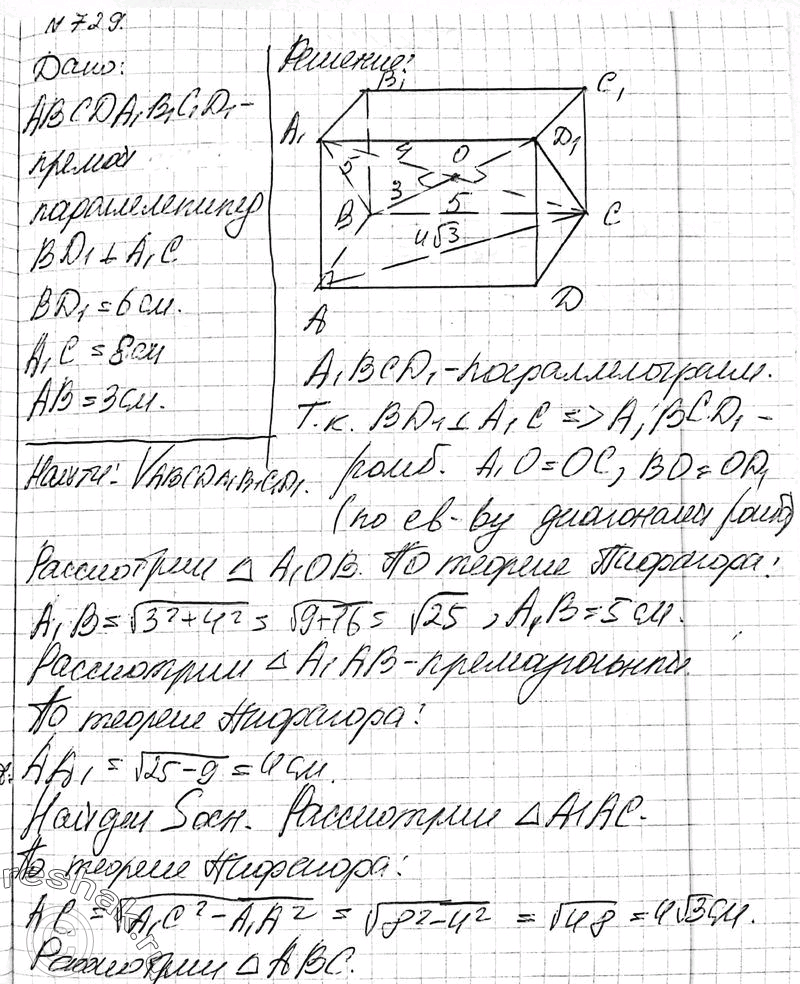 №729.
Дано:
Решение:
ABCDA₁B₁C₁D₁ –
прямой
параллелепипед
BD₁ ⊥ A₁C
BD₁ = 6 см.
A₁C = 8 см
AB = 3 см.
Найти: V ABCDA₁B₁C₁D₁.
B₁
C₁
A₁
D₁
5
4
O
3
B
5
C
4√3
A
D
A₁BCD₁ – параллелограмм.
Т.к. BD₁ ⊥ A₁C => A₁BCD₁ –
ромб. A₁O = OC, BO = OD₁
(по св-ву диагоналей ромба)
Рассмотрим △ A₁OB. По теореме Пифагора:
A₁B = √3²+4² = √9+16 = √25, A₁B = 5 см.
Рассмотрим △ A₁AB – прямоугольный.
По теореме Пифагора:
AA₁ = √25-9 = 4 см.
Найдем Sосн. Рассмотрим △ A₁AC.
По теореме Пифагора:
AC = √A₁C² - A₁A² = √8²-4² = √48 = 4√3 см.
Рассмотрим △ ABC.
reshak.ru